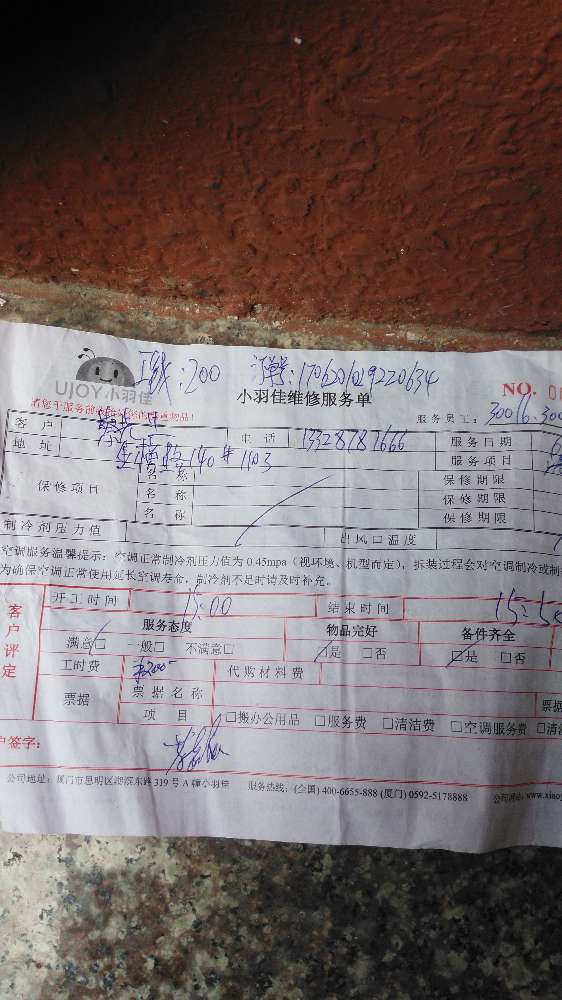 工钱:200 170620109220634
UJOY小羽佳
小羽佳维修服务单 NO. 0
服务员工: 30016.300
客户 电话 13328787666 服务日期
地址 140#1103 服务项目
保修项目 名称 保修期限
名称 保修期限
名称 保修期限
制冷剂压力值 出风口温度
空调服务温馨提示:空调正常制冷剂压力值为0.45mpa(视环境、机型而定),拆装过程会对空调制冷或制
为确保空调正常使用延长空调寿命,制冷剂不足时请及时补充。
客户评定
开工时间 15:00 结束时间 15:5
服务态度 物品完好 备件齐全
满意□ 一般□ 不满意□ □是 □否 □是 □否
工时费 ¥200- 代购材料费
票据 票据名称 票据
项目 □搬办公用品 □服务费 □清洁费 □空调服务费 □清洁
户签字:
公司地址:厦门市思明区湖滨东路319号A幢小羽佳 服务热线:(全国)400-6655-888 (厦门)0592-5178888 公司网站:www.xiaoy